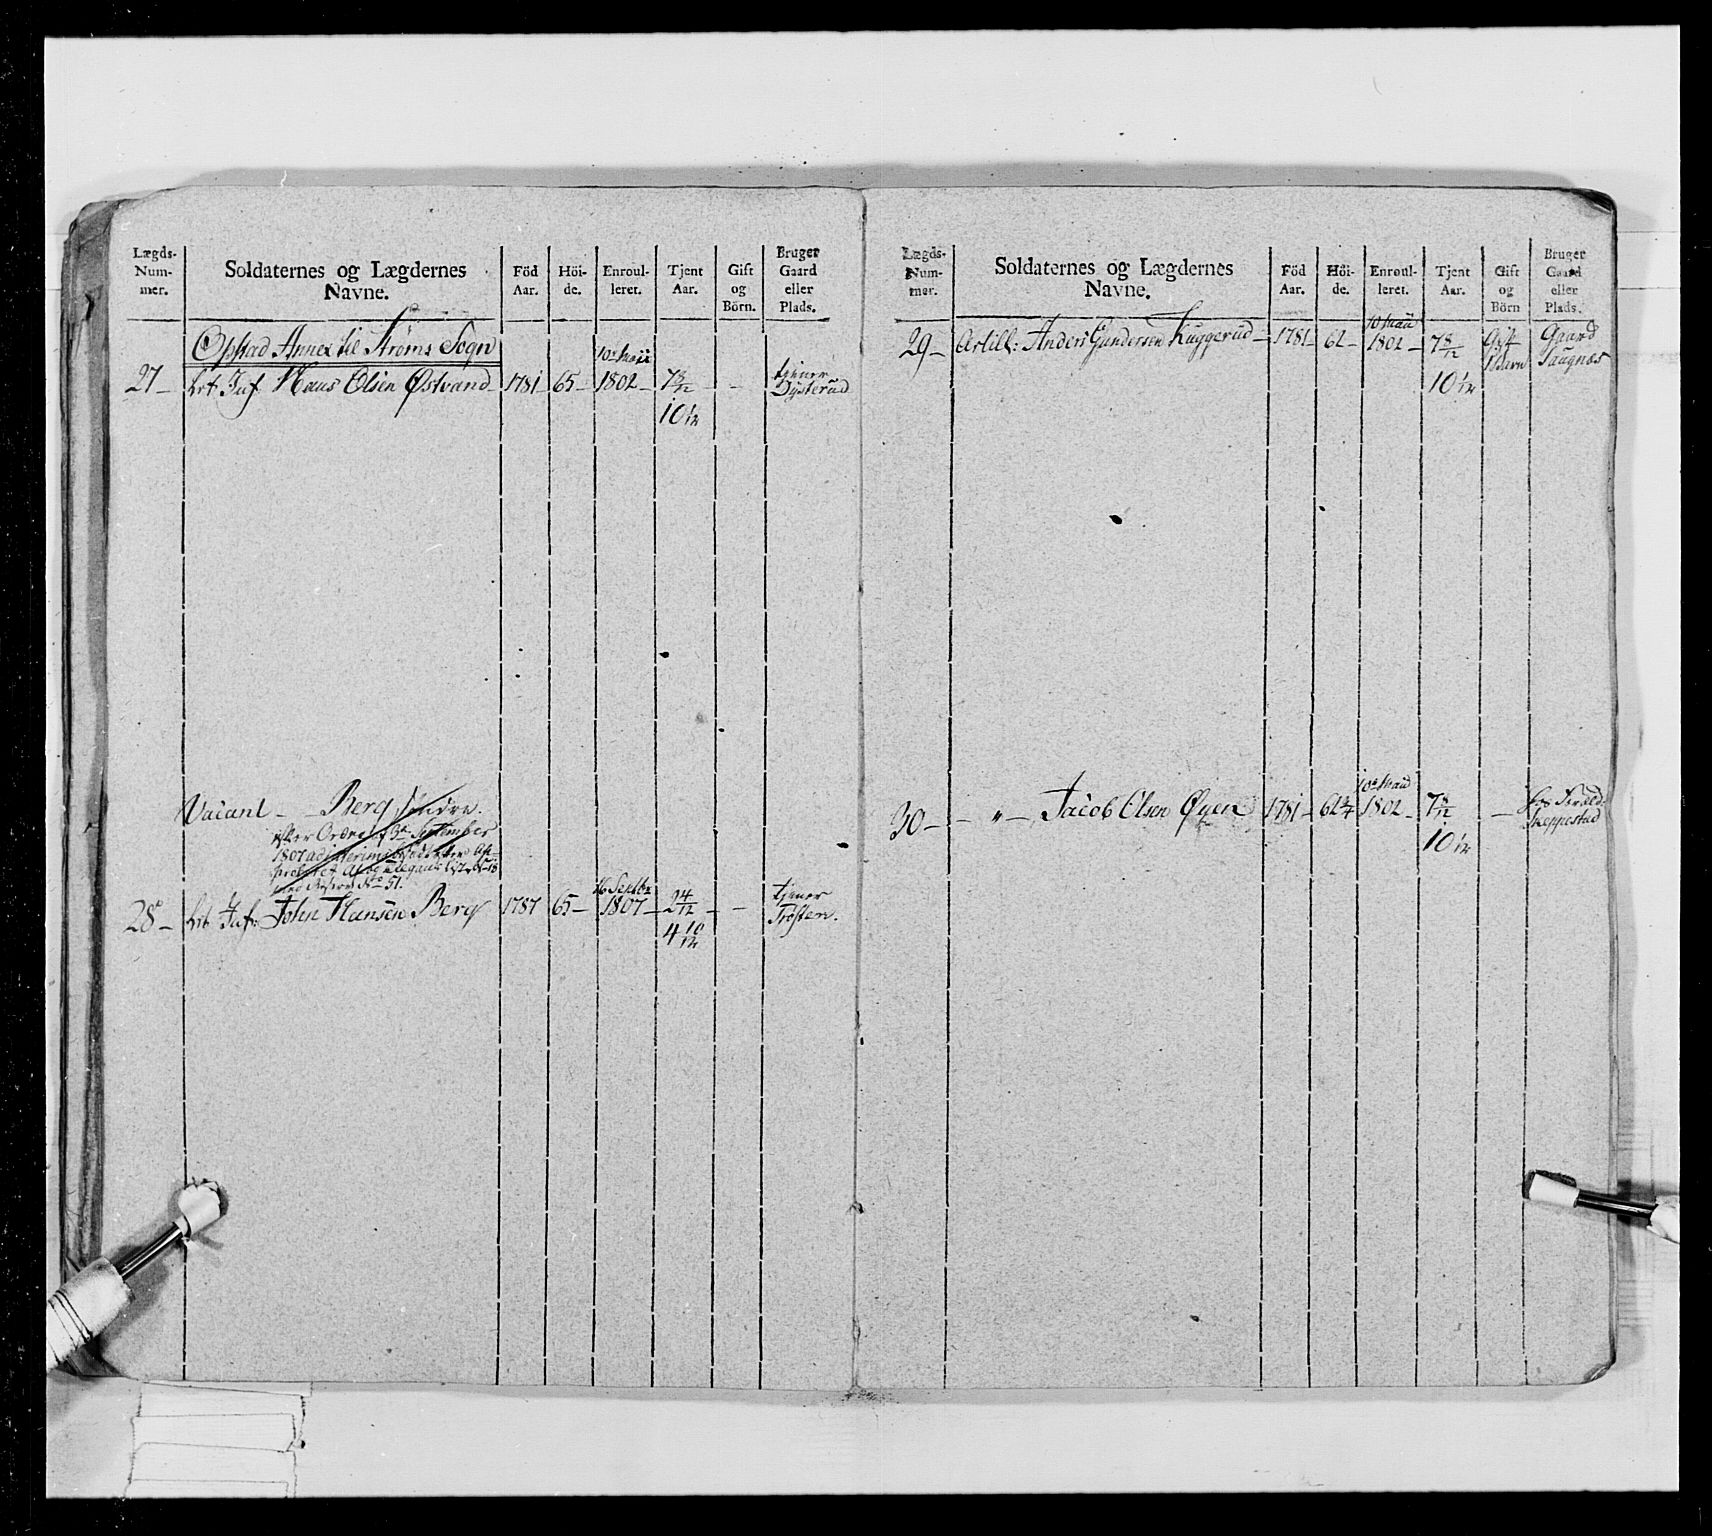 Lægds-
Num-
mer.
Soldaternes og Lægdernes
Navne.
Föd
Aar.
Höi-
de.
Enroul-
leret.
Tjent
Aar.
Gift
og
Börn.
Bruger
Gaard
eller
Plads.
Opstad Annex til Strøms Sogn
27 – Let Inf Hans Olsen Østvand – 1781 65 – 10de Maii 1802 – 7 8/12 – – tjener
Dysterud
10 1/12
Vacant – – Berg søndre.
efter Ordre af 3de September
1807 ad interim
med Reserv No 51.
28 – Let Inf: John Hansen Berg 1787 65 – 16 Septbr 1807 – 2 4/12 – – tjener
Trøften.
4 10/12
Lægds-
Num-
mer.
Soldaternes og Lægdernes
Navne.
Föd
Aar.
Höi-
de.
Enroul-
leret.
Tjent
Aar.
Gift
og
Börn
Bruger
Gaard
eller
Plads.
29 – Artill: Anders Gundersen Kuggerud – 1781 – 62 – 10 Maii 1802 – 7 8/12 Gift
1 Barn Gaard
Saugnæs
10 1/12
30 – – " – Jacob Olsen Øyen 1781 – 62 3/4 10de Maii 1802 – 7 8/12 – hos Foræld:
Skeppestad
10 1/12